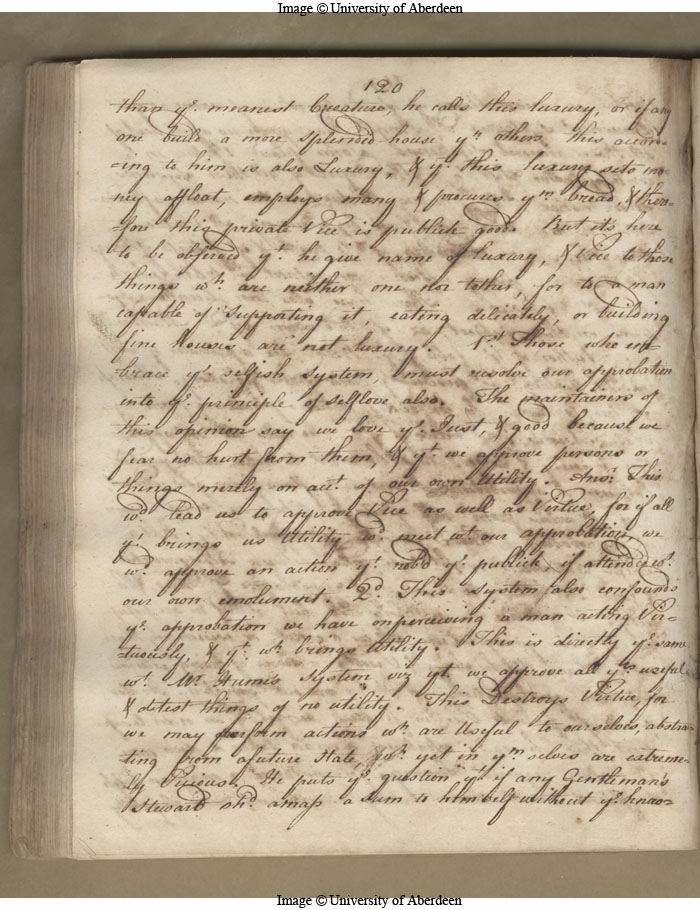 Image © University of Aberdeen
120
than yᵉ. meanest Creature, he calls this luxury, or if any
one build a more splendid house yⁿ others, this accor=
=ing to him is also Luxury, & yᵗ. this luxury sets mo
ney affloat, employs many & procures yᵐ bread, & there=
=fore this private Vice is publick good. But its here
to be observed yᵗ. he give name of luxury, & Vice to those
things wʰ. are neither one nor tother, for to a man
capable of supporting it, eating delicately, or building
fine houses are not luxury. 1ˢᵗ Those who em=
brace yᵉ. selfish system, must resolve our approbation
into yᵉ. principle of selflove also. The maintainers of
this opinion say we love yᵉ. Just, & good because we
fear no hurt from them, & yᵗ. we approve persons or
things merely on accᵗ. of our own Utility. Ansʳ. This
wᵈ. lead us to approve Vice as well as Virtue, for if all
yᵗ. brings us Utility wᵈ. meet wᵗ. our approbation, we
wᵈ. approve an action yᵗ. robd yᵉ. publick if attended wᵗ.
our own emolument. 2ᵈ. This system also confounds
yᵉ. approbation we have on perceiving a man acting Vir=
=tuously, & yᵗ. wʰ brings utility. This is directly yᵉ. same
wᵗ. Mʳ Humes System viz yᵗ. we approve all yᵗˢ useful
& detest things of no utility. This Destroys Virtue, for
we may perform actions wʰ. are Useful to ourselves, abstra=
ting from a future State, wʰ. yet in yᵐ selves are extreme=
ly Vicious. He puts yᵉ. question yᵗ. if any Gentleman's
Steward shᵈ. amass a sum to himself without yᵉ. know=
Image © University of Aberdeen